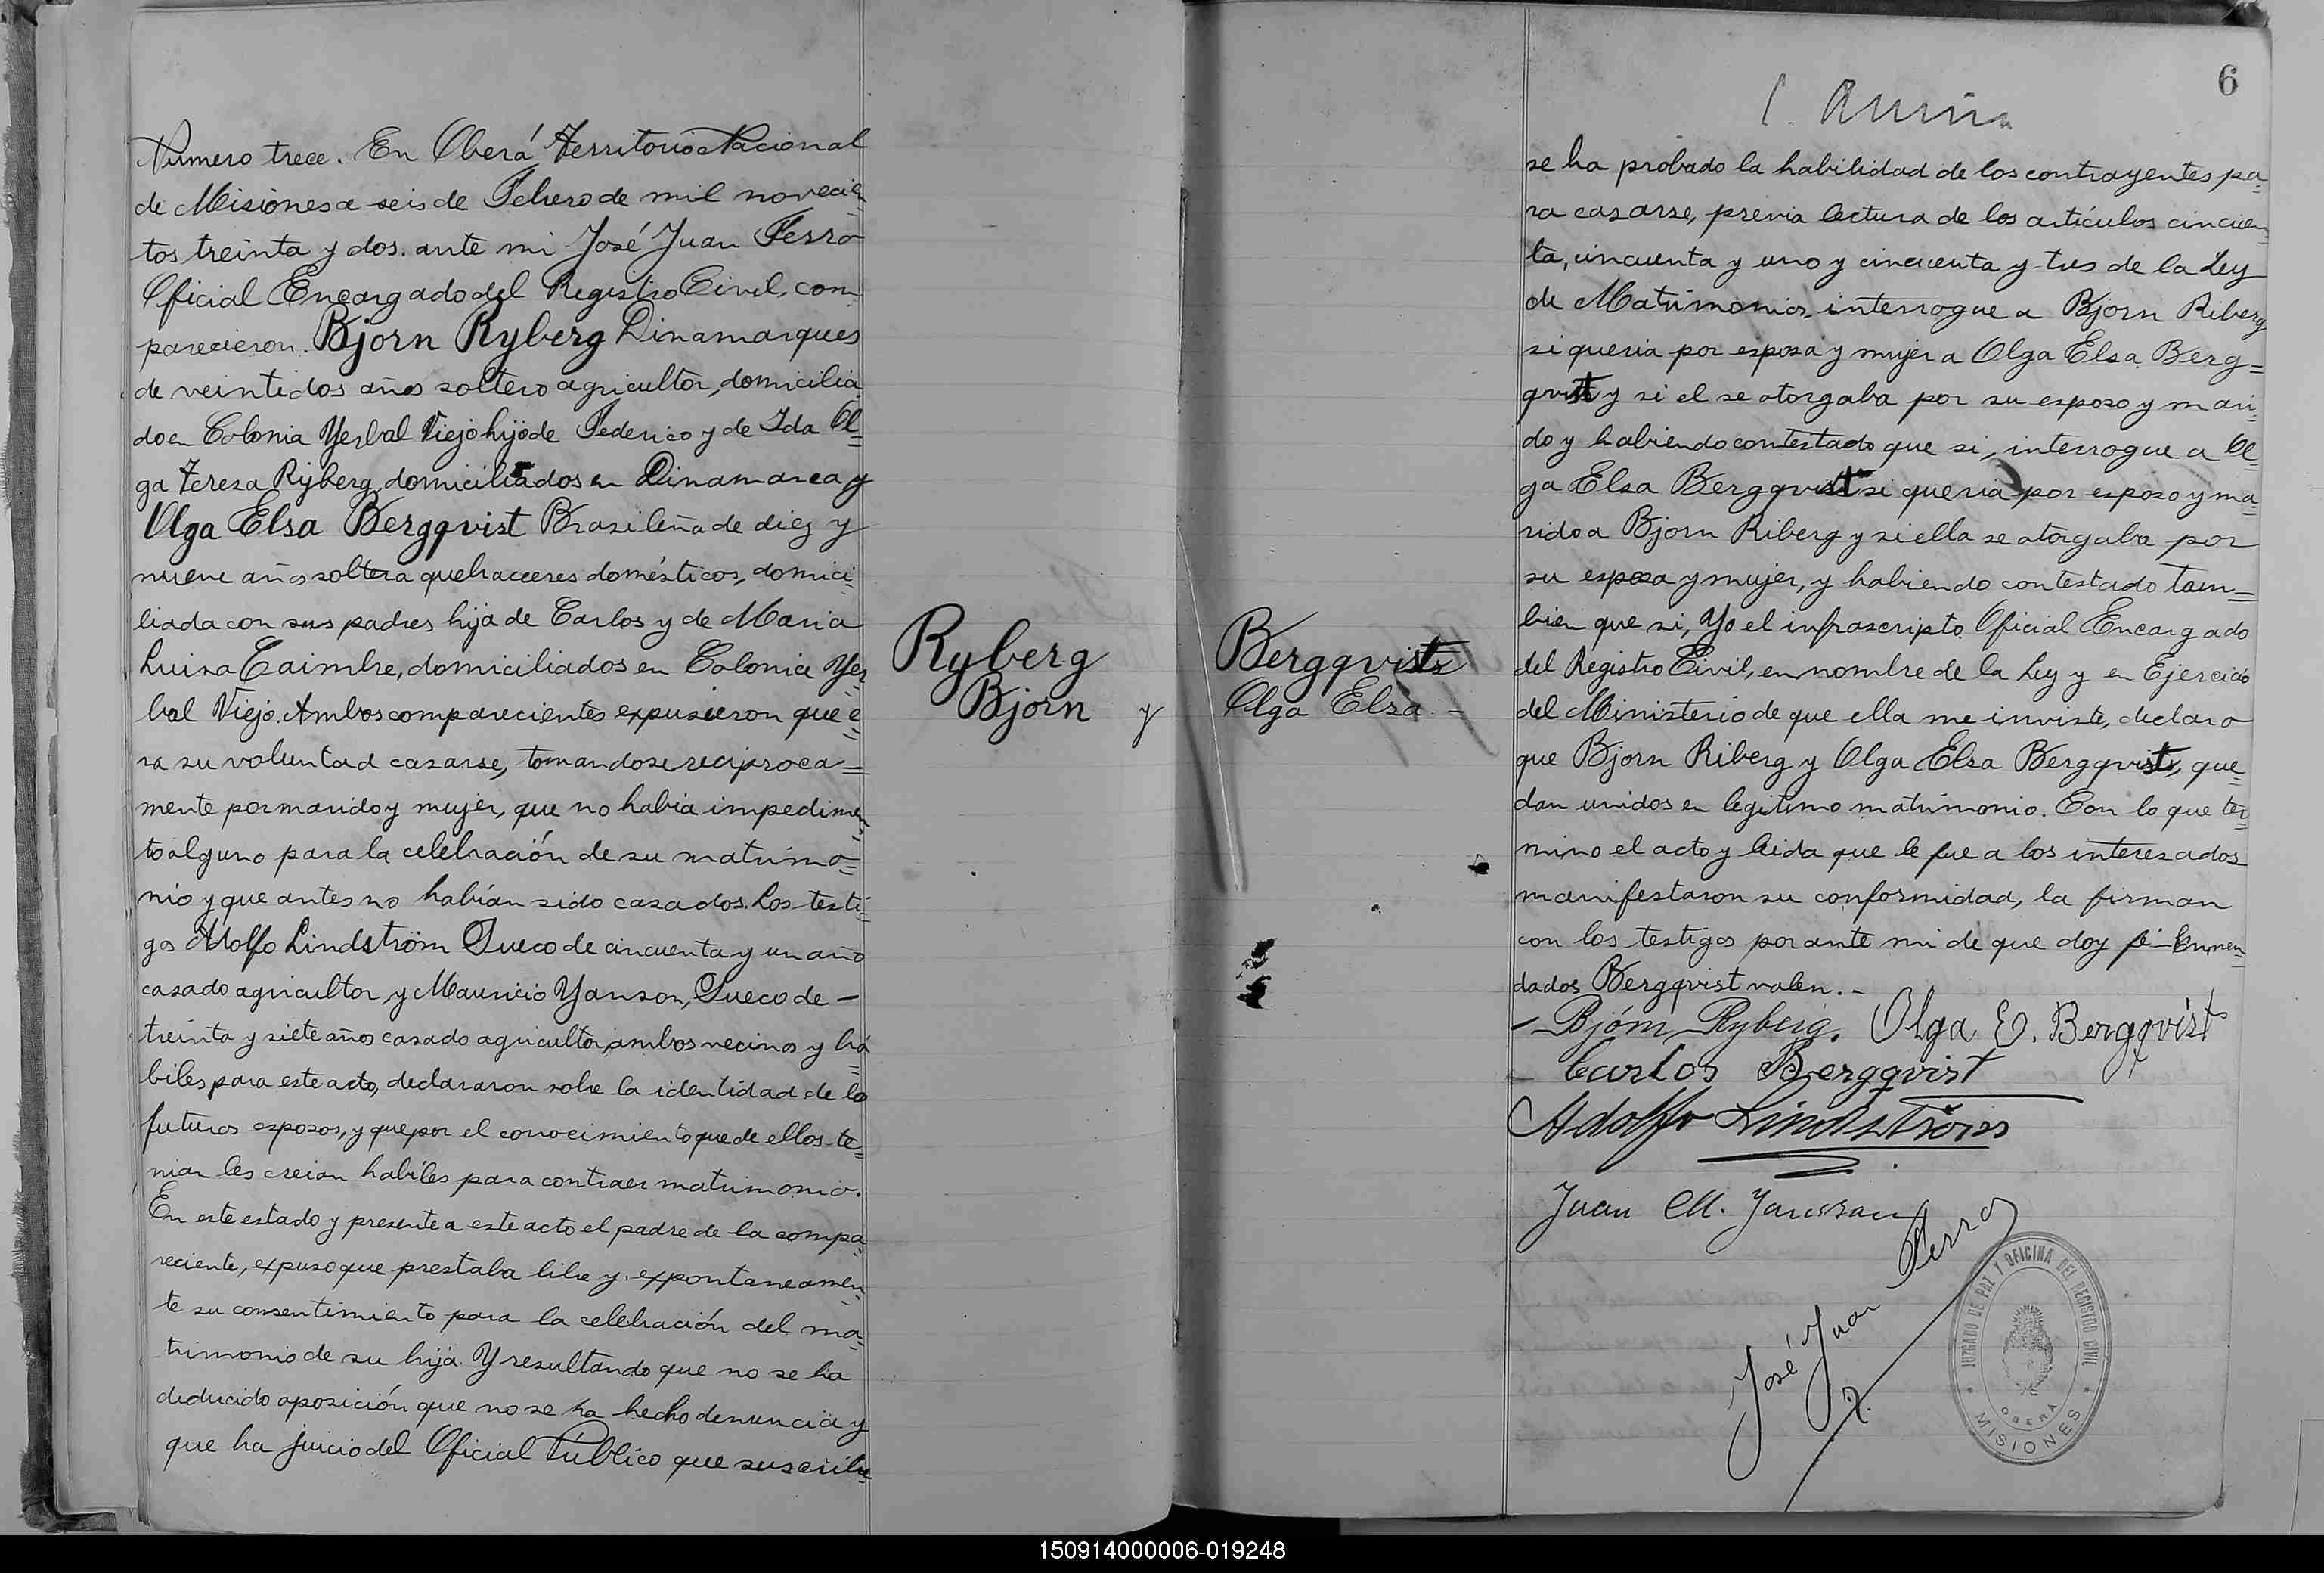 Numero trece. En Oberá Territorio Nacional
de Misiones a seis de Febrero de mil novecien=
tos treinta y dos. ante mi José Juan Ferro
Oficial Encargado del Registro Civil, com
parecieron. Bjorn Ryberg Dinamarques
de veintidos años soltero agricultor, domicilia
do en Colonia Yerbal Viejo hijo de Federico y de Ida Ol=
ga Teresa Ryberg, domiciliados en Dinamarca y
Olga Elsa Bergqvist Brasileña de diez y
nueve años soltera quehaceres domésticos, domici=
liada con sus padres hija de Carlos y de Maria
Luisa Caimbre, domiciliados en Colonia Yer=
bal Viejo. Ambos comparecientes expusieron que e=
ra su voluntad casarse, tomandose reciproca=
mente por marido y mujer, que no habia impedimen=
to alguno para la celebración de su matrimo=
nio y que antes no habían sido casados. Los testi=
gos Adolfo Lindström Sueco de cincuenta y un año
casado agricultor y Mauricio Yanson, Sueco de -
treinta y siete años casado agricultor, ambos vecinos y há=
biles para este acto, declararon sobre la identidad de los
futuros esposos, y que por el conocimiento que de ellos te=
nian les creian habiles para contraer matrimonio.
En este estado y presente a este acto el padre de la compa=
reciente, expuso que prestaba libre y expontaneamen=
te su consentimiento para la celebración del ma=
trimonio de su hija. Y resultando que no se ha
deducido oposición que no se ha hecho denuncia y
que ha juicio del Oficial Público que suscribe
Ryberg
Bjorn y
Bergqvist
Olga Elsa -
6
se ha probado la habilidad de los contrayentes pa=
ra casarse, previa lectura de los artículos cincuen=
ta, cincuenta y uno y cincuenta y tres de la Ley
de Matrimonios, interrogue a Bjorn Riberg
si queria por esposa y mujer a Olga Elsa Berg=
qvist y si el se otorgaba por su esposo y mari=
do y habiendo contestado que si, interrogue a Ol=
ga Elsa Bergqvist si queria por esposo y ma=
rido a Bjorn Riberg y si ella se otorgaba por
su esposa y mujer, y habiendo contestado tam=
bien que si, Yo el infrascripto Oficial Encargado
del Registro Civil, en nombre de la Ley y en Ejercicio
del Ministerio de que ella me inviste, declaro
que Bjorn Riberg y Olga Elsa Bergqvist, que=
dan unidos en legitimo matrimonio. Con lo que ter=
mino el acto y leida que le fue a los interesados
manifestaron su conformidad, la firman
con los testigos por ante mi de que doy fé - Enmen=
dados Bergqvist valen. -
- Bjórn Ryberg. Olga E. Bergqvist
- Carlos Bergqvist
Adolfo Lindström
Juan M. Jansson
José Juan Ferro
JUZGADO DE PAZ Y OFICINA DEL REGISTRO CIVIL
OBERÁ
MISIONES
150914000006-019248